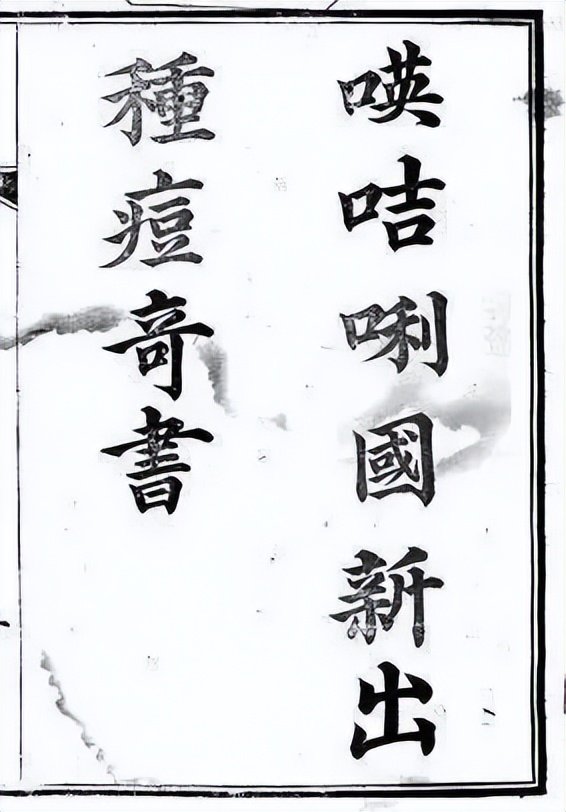 㗲咭唎國新出
種痘奇書